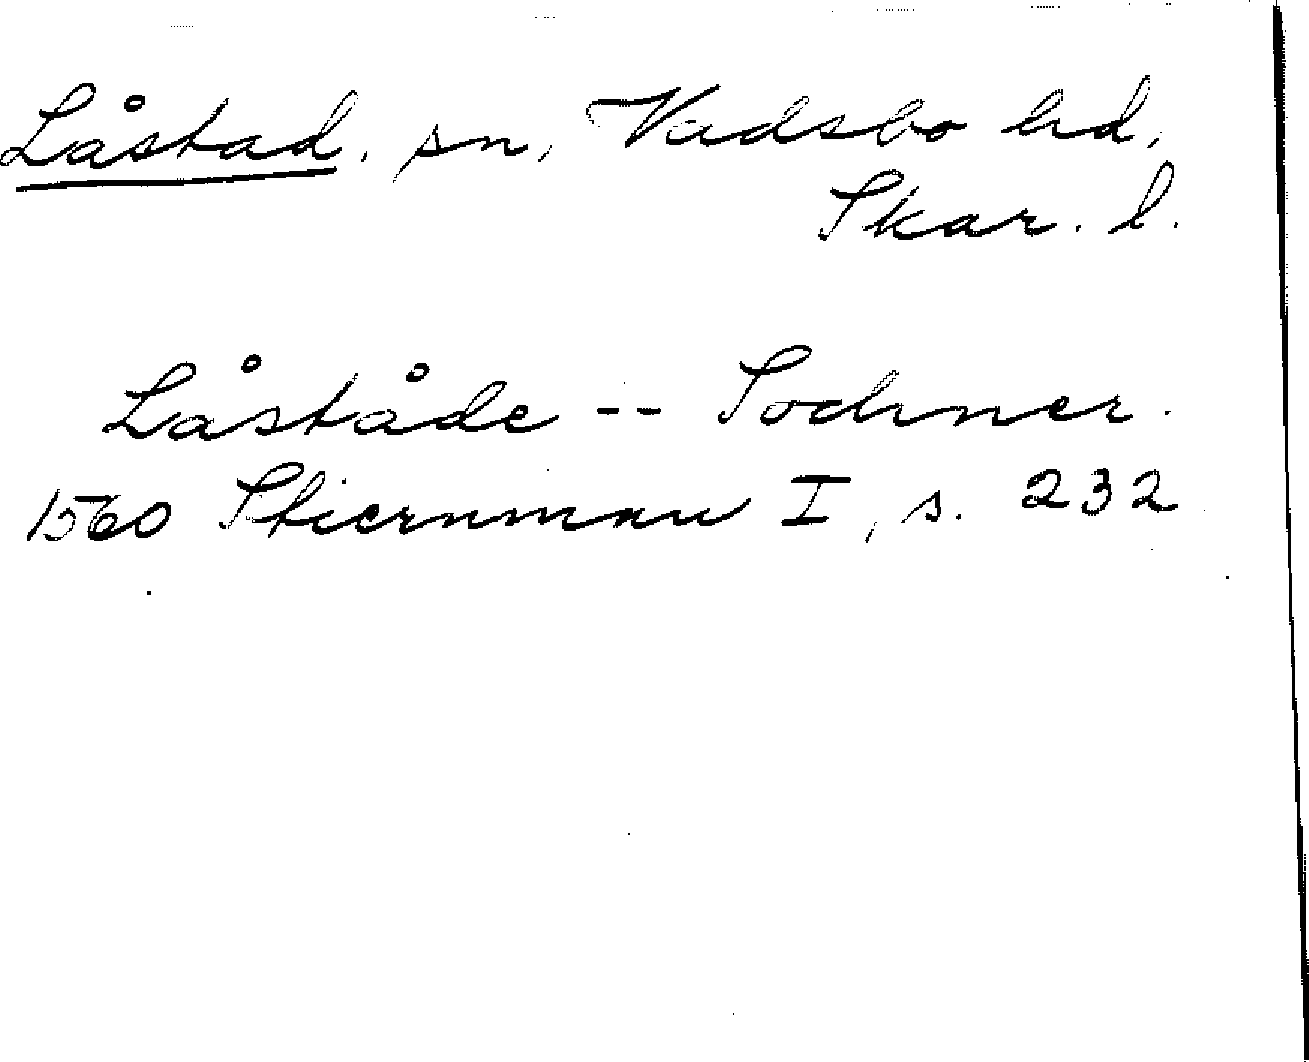 Låstad, sn, Vadsbo hd,
Skar. l.
Låståde -- Sochner.
1560 Stiernman I, s. 232